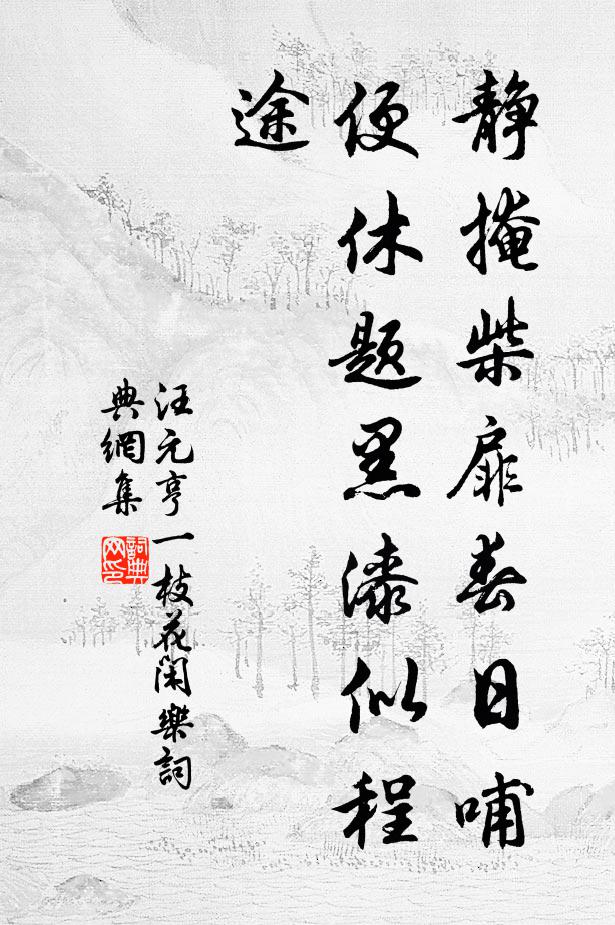 静掩柴扉春日哺
便休题黑漆似程
途
汪元亨一枝花閑樂詞
典網集
詞典网印